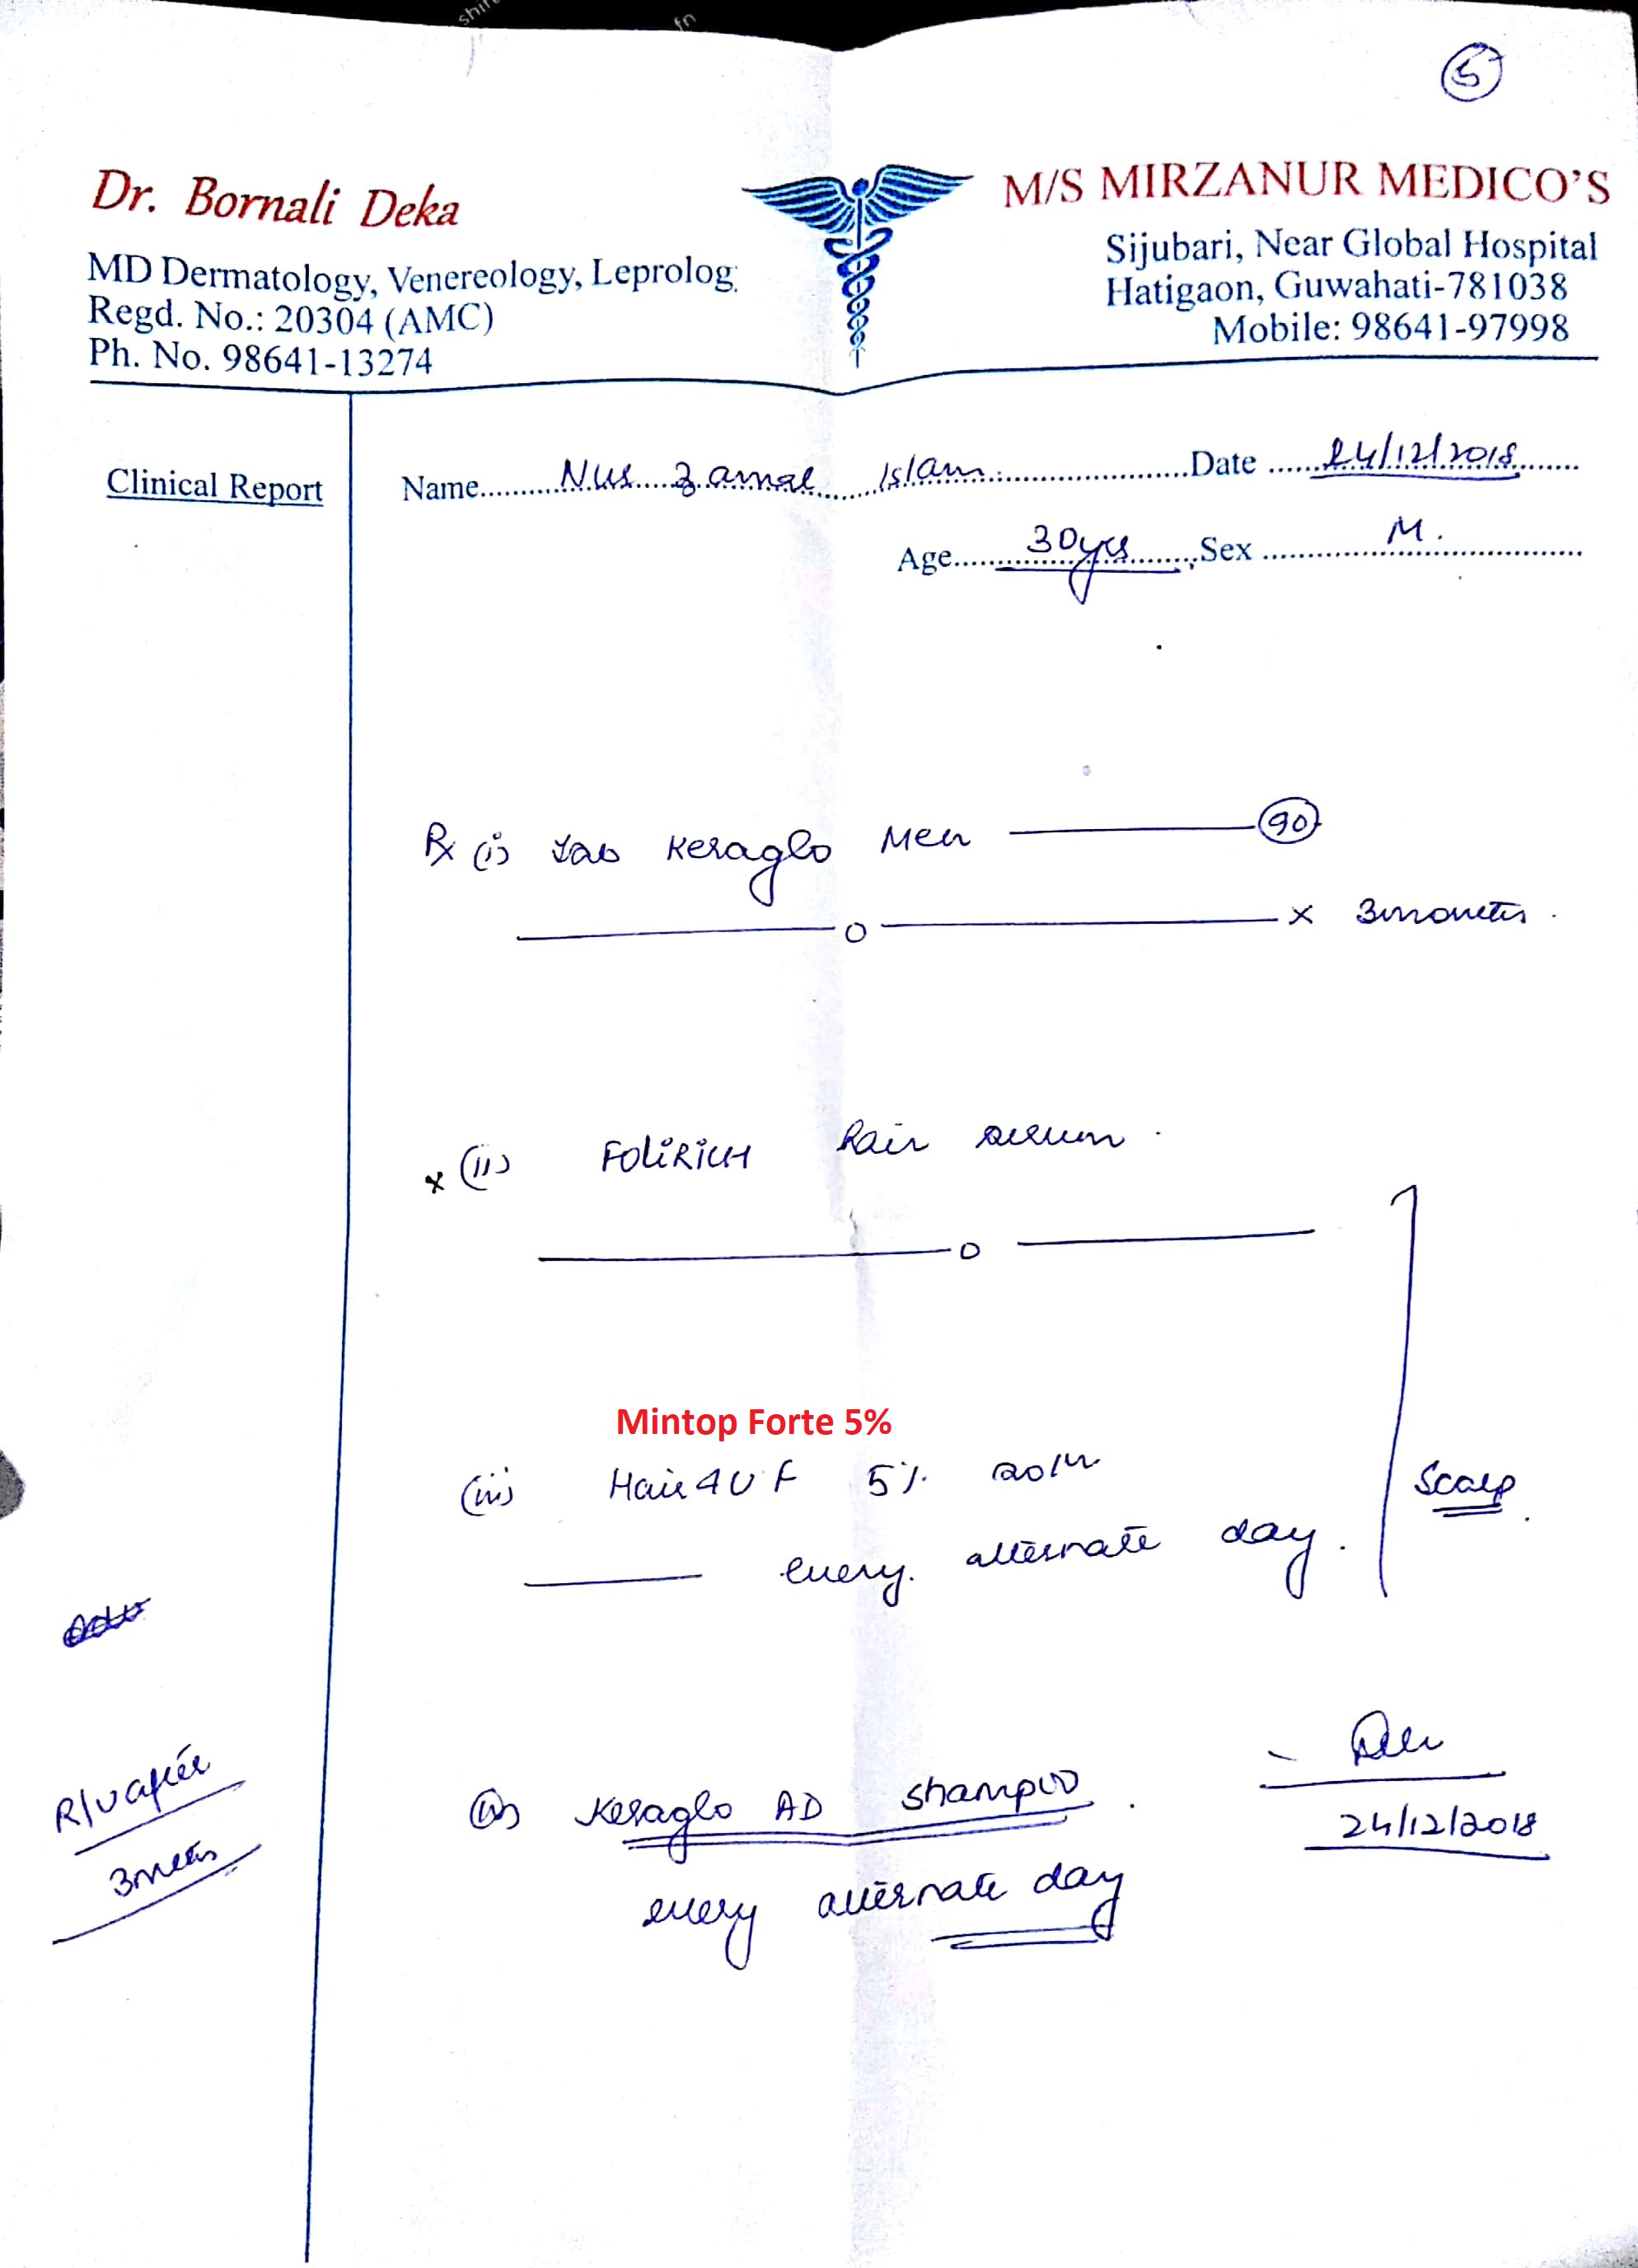 shift
fn
5
Dr. Bornali Deka
MD Dermatology, Venereology, Leprolog
Regd. No.: 20304 (AMC)
Ph. No. 98641-13274
M/S MIRZANUR MEDICO'S
Sijubari, Near Global Hospital
Hatigaon, Guwahati-781038
Mobile: 98641-97998
Clinical Report
Name Nur Zamal Islam Date 24/12/2018
Age 30yrs Sex M.
Rx (i) Tab Keraglo Men 90
o x 3months.
x (ii) FOLIRICH hair serum.
o
Mintop Forte 5%
(iii) Hair4U F 5% soln
every alternate day.
Scalp
R/v after
3mnths
(iv) Keraglo AD shampoo.
every alternate day
24/12/2018